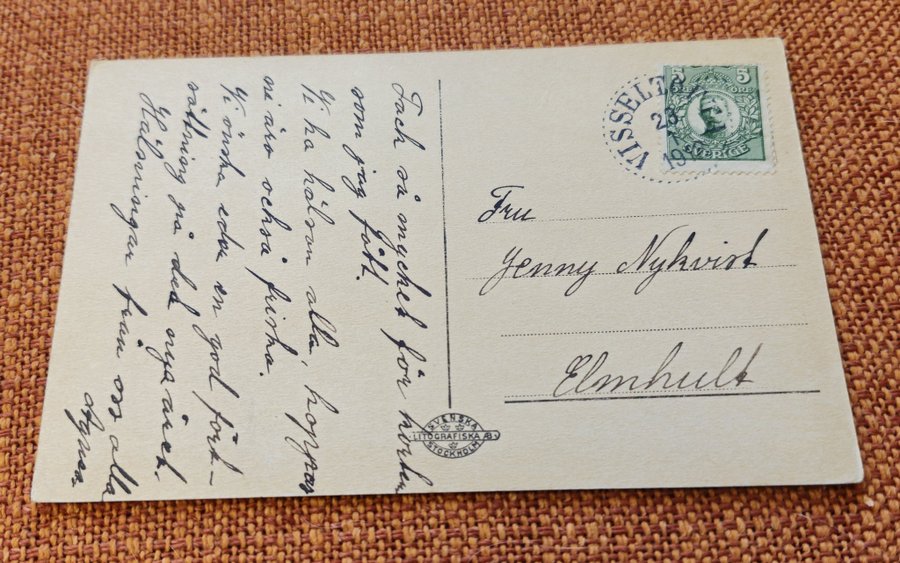 Tack så mycket för korten
som jag fått.
Vi ha hälsan alla, hoppas
ni äro också friska.
Vi önska eder en god fort-
sättning på det nya året.
Hälsningar från oss alla
VISSELT
19
5 5
SVERIGE
Fru
Jenny Nykvist
Elmhult
SVENSKA
LITOGRAFISKA AB
STOCKHOLM